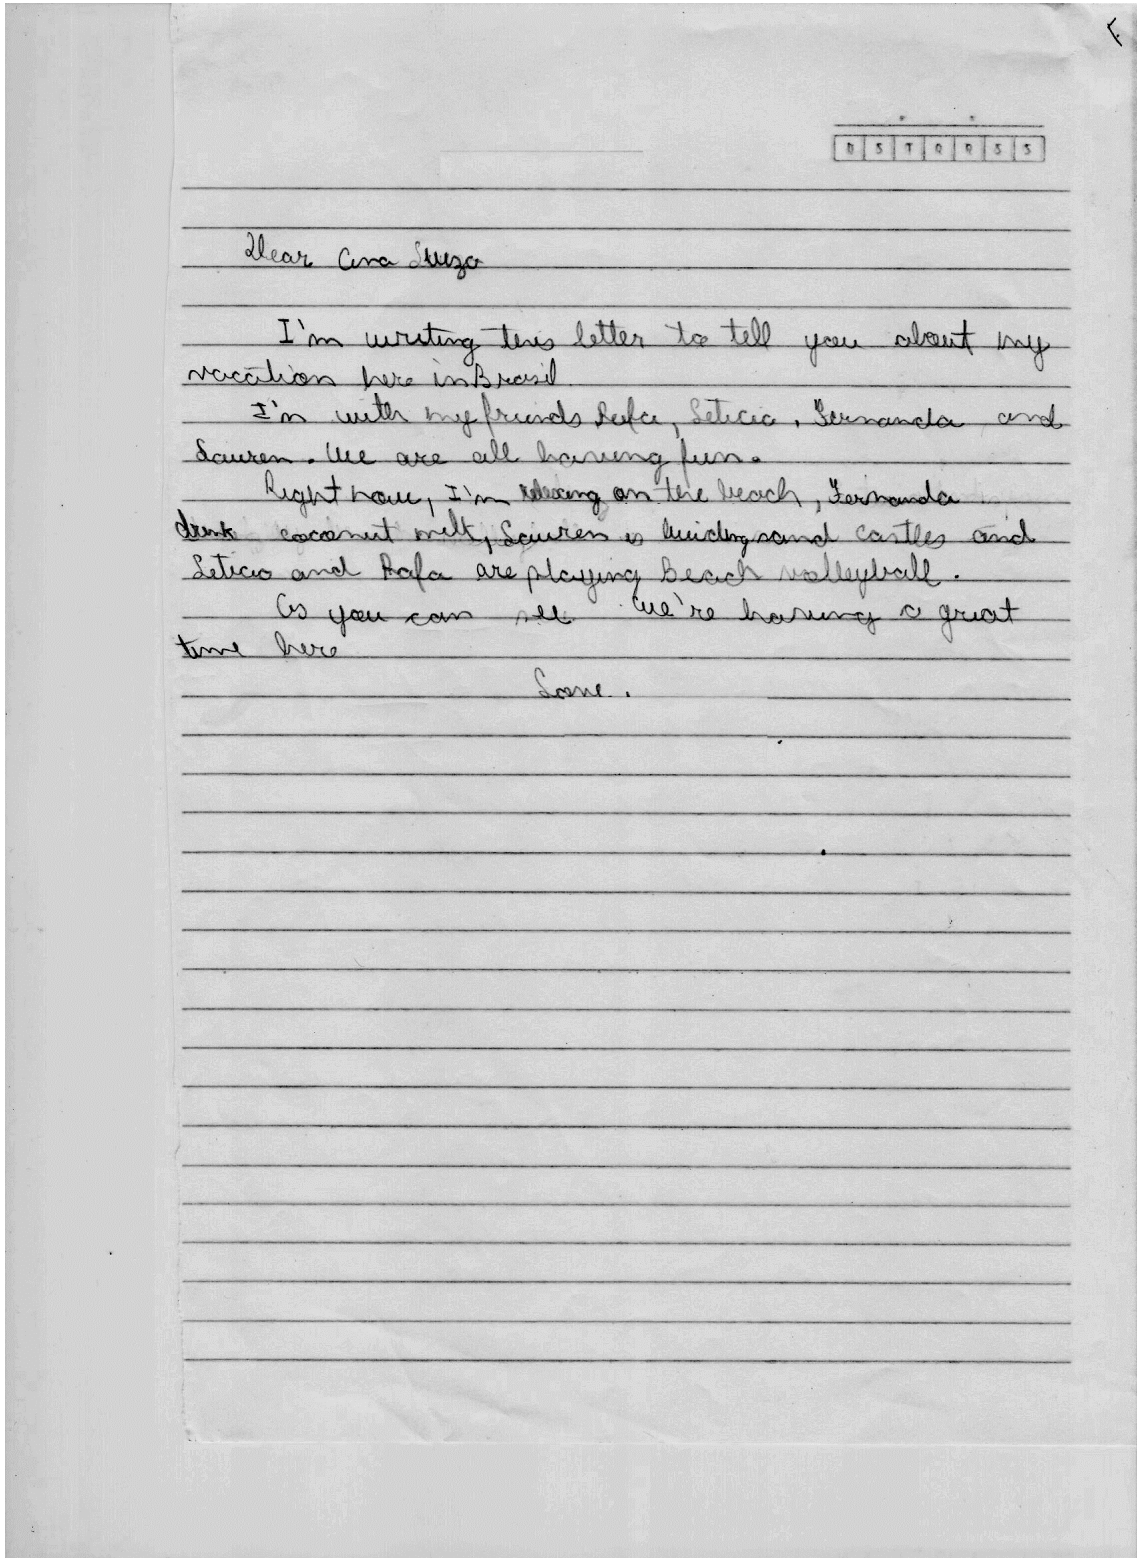 D S T Q Q S S
Dear Ana
I'm writing this letter to tell you about my
vacation here in Brasil
I'm with my friends Rafa, Leticia, Fernanda and
Lauren. We are all having fun.
Right now, I'm relaxing on the beach, Fernanda
drink coconut milk, Lauren is buiding sand castles and
Leticia and Rafa are playing Beach volleyball.
As you can see We're having a great
time here
Love.